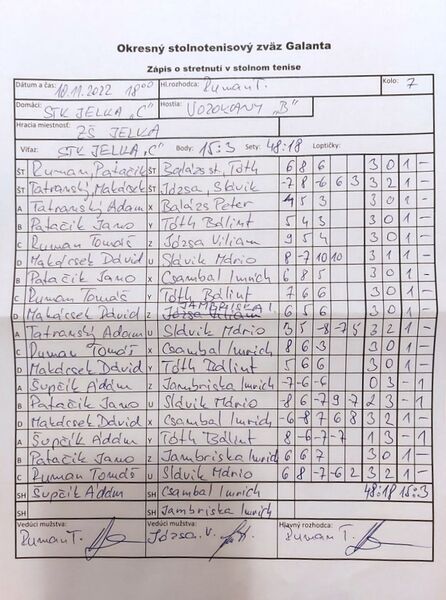 Okresný stolnotenisový zväz Galanta
Zápis o stretnutí v stolnom tenise
Dátum a čas: 10.11.2022 18:00 Hl.rozhodca: Ruman T. Kolo: 7
Domáci: STK JELKA "C" Hostia: VOZOKANY "B"
Hracia miestnosť: ZŠ JELKA
Víťaz: STK JELKA "C" Body: 15:3 Sety: 48:18 Loptičky:
ŠT Ruman, Patačik ŠT Balázs st, Tóth 6 8 6 3 0 1 -
ŠT Tatranský, Makácsek ŠT Józsa, Slávik -7 8 -6 6 3 3 2 1 -
A Tatranský Adam X Balázs Peter 4 5 3 3 0 1 -
B Patačik Jano Y Tóth Bálint 5 4 3 3 0 1 -
C Ruman Tomáš Z Józsa Viliam 9 5 4 3 0 1 -
D Makácsek Dávid U Slávik Mário 8 -7 10 10 3 1 1 -
B Patačik Jano X Csambal Imrich 6 8 5 3 0 1 -
C Ruman Tomáš Y Tóth Bálint 7 6 6 3 0 1 -
JAMBRIŠKA I.
D Makácsek Dávid Z 6 5 6 3 0 1 -
A Tatranský Adam U Slávik Mário 3 5 -8 -7 5 3 2 1 -
C Ruman Tomáš X Csambal Imrich 8 6 3 3 0 1 -
D Makácsek Dávid Y Tóth Bálint 5 6 6 3 0 1 -
A Šupčík Adam Z Jambriska Imrich -7 -6 -6 0 3 - 1
B Patačik Jano U Slávik Mário 8 6 -7 9 -7 2 3 - 1
D Makácsek Dávid X Csambal Imrich -6 8 -7 6 8 3 2 1 -
A Šupčík Adam Y Tóth Bálint 8 -6 -7 -7 1 3 - 1
B Patačik Jano Z Jambriska Imrich 6 6 7 3 0 1 -
C Ruman Tomáš U Slávik Mário 6 8 -7 -6 2 3 2 1 -
SH Šupčík Adam SH Csambal Imrich 48:18 15:3
SH SH Jambriska Imrich
Vedúci mužstva: Vedúci mužstva: Hlavný rozhodca:
Ruman T. Józsa V. Ruman T.